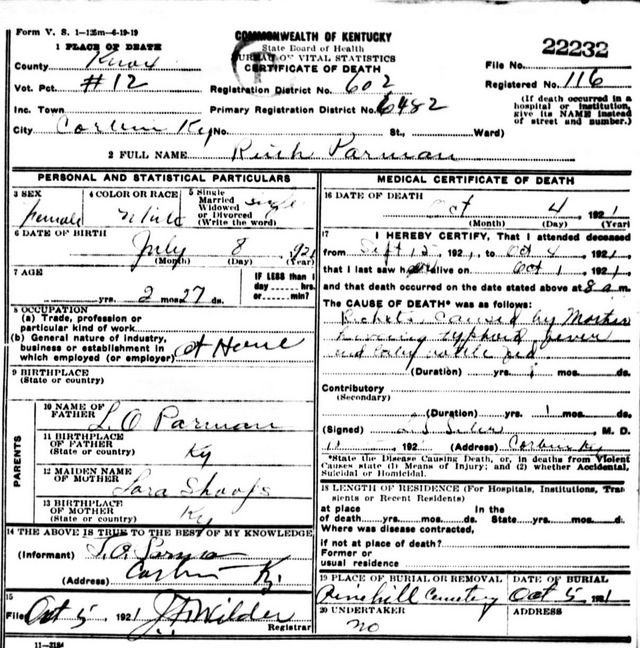 Form V. S. 1-125m-6-19-19
COMMONWEALTH OF KENTUCKY
State Board of Health
BUREAU OF VITAL STATISTICS
CERTIFICATE OF DEATH
22232
1 PLACE OF DEATH
County Knox
File No.
Vot. Pct. #12
Registration District No. 602
Registered No. 116
Inc. Town
Primary Registration District No. 6482
(If death occurred in a hospital or institution, give its NAME instead of street and number.)
City Corbin Ky No. St., Ward)
2 FULL NAME Ruth Parman
PERSONAL AND STATISTICAL PARTICULARS
3 SEX
Female
4 COLOR OR RACE
White
5 Single
Married
Widowed
or Divorced
(Write the word)
Single
6 DATE OF BIRTH
July 8 1921
(Month) (Day) (Year)
7 AGE
yrs. 2 mos 27 ds.
IF LESS than 1
day hrs.
or min?
8 OCCUPATION
(a) Trade, profession or
particular kind of work
(b) General nature of industry,
business or establishment in
which employed (or employer) at Home
9 BIRTHPLACE
(State or country)
PARENTS
10 NAME OF
FATHER
L.O Parman
11 BIRTHPLACE
OF FATHER
(State or country)
Ky
12 MAIDEN NAME
OF MOTHER
13 BIRTHPLACE
OF MOTHER
(State or country)
Ky
14 THE ABOVE IS TRUE TO THE BEST OF MY KNOWLEDGE
(Informant)
(Address) Corbin Ky.
15
Filed Oct 5 1921 J. Wilder
Registrar
11-2184
MEDICAL CERTIFICATE OF DEATH
16 DATE OF DEATH
Oct 4, 1921
(Month) (Day) (Year)
17
I HEREBY CERTIFY, That I attended deceased
from Sept 15, 1921, to Oct 4 1921
that I last saw h alive on Oct 1, 1921
and that death occurred on the date stated above at 8 a m.
The CAUSE OF DEATH* was as follows:
Rickets, caused by Mother
having typhoid fever
and baby bottle fed
(Duration) yrs. mos. ds.
Contributory
(Secondary)
(Duration) yrs. 1 mos. ds.
(Signed) M. D.
192 (Address) Corbin Ky
*State the Disease Causing Death, or, in deaths from Violent
Causes state (1) Means of Injury; and (2) whether Accidental,
Suicidal or Homicidal.
18 LENGTH OF RESIDENCE (For Hospitals, Institutions, Tran
sients or Recent Residents)
at place In the
of death yrs. mos. ds. State yrs. mos. d
Where was disease contracted,
if not at place of death?
Former or
usual residence
19 PLACE OF BURIAL OR REMOVAL
Pinehill Cemetery
DATE OF BURIAL
Oct 5 1921
20 UNDERTAKER
no
ADDRESS